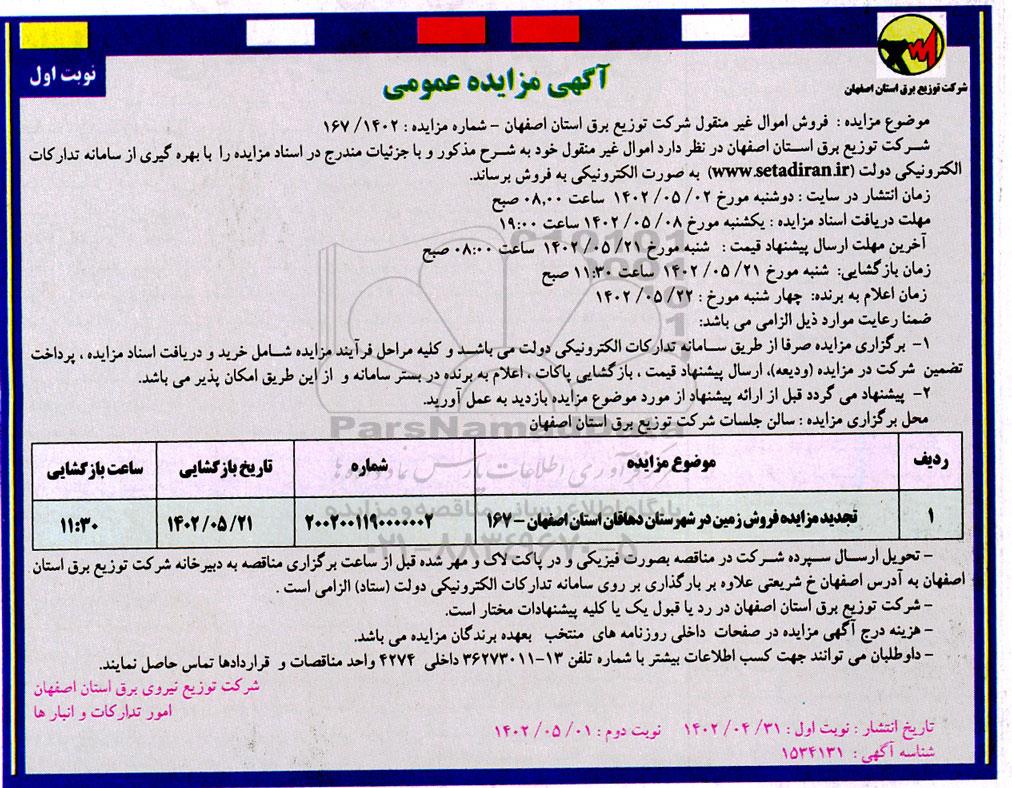 شرکت توزیع برق استان اصفهان
نوبت اول
آگهی مزایده عمومی
موضوع مزایده : فروش اموال غیر منقول شرکت توزیع برق استان اصفهان - شماره مزایده : ۱۴۰۲/ ۱۶۷
شرکت توزیع برق استان اصفهان در نظر دارد اموال غیر منقول خود به شرح مذکور و با جزئیات مندرج در اسناد مزایده را با بهره گیری از سامانه تدارکات
الکترونیکی دولت (www.setadiran.ir) به صورت الکترونیکی به فروش برساند.
زمان انتشار در سایت : دوشنبه مورخ ۰۲/ ۰۵/ ۱۴۰۲ ساعت ۰۸,۰۰ صبح
مهلت دریافت اسناد مزایده : یکشنبه مورخ ۰۸/ ۰۵/ ۱۴۰۲ ساعت ۱۹:۰۰
آخرین مهلت ارسال پیشنهاد قیمت : شنبه مورخ ۲۱/ ۰۵/ ۱۴۰۲ ساعت ۰۸:۰۰ صبح
زمان بازگشایی: شنبه مورخ ۲۱/ ۰۵/ ۱۴۰۲ ساعت ۱۱:۳۰ صبح
زمان اعلام به برنده: چهار شنبه مورخ : ۲۲/ ۰۵/ ۱۴۰۲
ضمنا رعایت موارد ذیل الزامی می باشد:
۱- برگزاری مزایده صرفا از طریق سامانه تدارکات الکترونیکی دولت می باشد و کلیه مراحل فرآیند مزایده شامل خرید و دریافت اسناد مزایده ، پرداخت
تضمین شرکت در مزایده (ودیعه)، ارسال پیشنهاد قیمت ، بازگشایی پاکات ، اعلام به برنده در بستر سامانه و از این طریق امکان پذیر می باشد.
۲- پیشنهاد می گردد قبل از ارائه پیشنهاد از مورد موضوع مزایده بازدید به عمل آورید.
محل برگزاری مزایده : سالن جلسات شرکت توزیع برق استان اصفهان
ParsNamadData
ردیف موضوع مزایده شماره تاریخ بازگشایی ساعت بازگشایی
۱ تجدید مزایده فروش زمین در شهرستان دهاقان استان اصفهان - ۱۶۷ ۲۰۰۲۰۰۱۱۹۰۰۰۰۰۰۲ ۱۴۰۲/۰۵/۲۱ ۱۱:۳۰
پایگاه اطلاع رسانی مناقصه و مزایده
۰۲۱-۸۸۳۴۹۶۷۰-۵
- تحویل ارسال سپرده شرکت در مناقصه بصورت فیزیکی و در پاکت لاک و مهر شده قبل از ساعت برگزاری مناقصه به دبیرخانه شرکت توزیع برق استان
اصفهان به آدرس اصفهان خ شریعتی علاوه بر بارگذاری بر روی سامانه تدارکات الکترونیکی دولت (ستاد) الزامی است .
- شرکت توزیع برق استان اصفهان در رد یا قبول یک یا کلیه پیشنهادات مختار است.
- هزینه درج آگهی مزایده در صفحات داخلی روزنامه های منتخب بعهده برندگان مزایده می باشد.
- داوطلبان می توانند جهت کسب اطلاعات بیشتر با شماره تلفن ۱۳-۳۶۲۷۳۰۱۱ داخلی ۴۲۷۴ واحد مناقصات و قراردادها تماس حاصل نمایند.
شرکت توزیع نیروی برق استان اصفهان
امور تدارکات و انبار ها
تاریخ انتشار : نوبت اول : ۳۱/ ۰۴/ ۱۴۰۲ نوبت دوم : ۰۱/ ۰۵/ ۱۴۰۲
شناسه آگهی : ۱۵۳۴۱۳۱